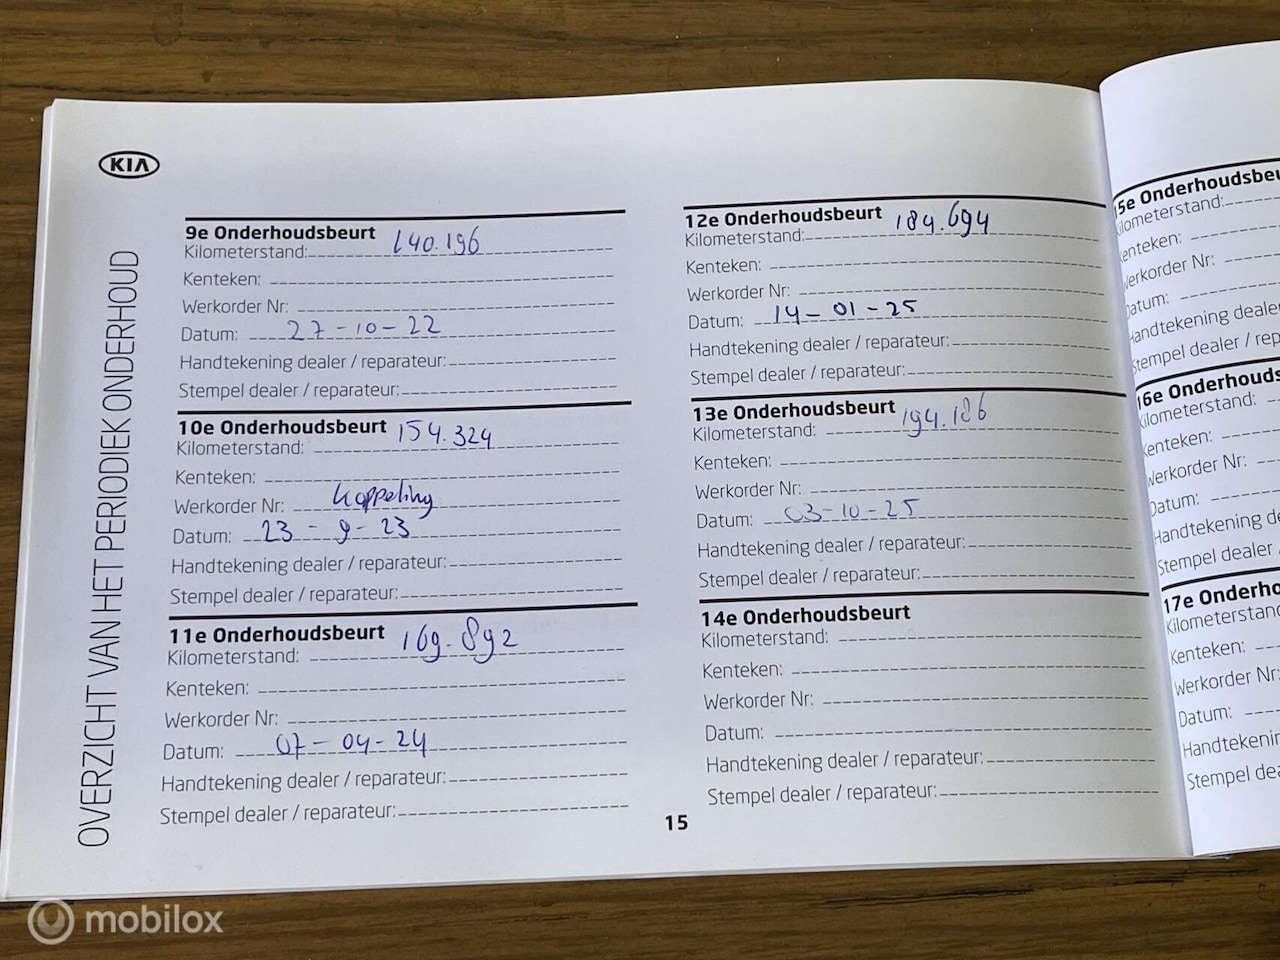 KIA
OVERZICHT VAN HET PERIODIEK ONDERHOUD
9e Onderhoudsbeurt
Kilometerstand: 140.196
Kenteken:
Werkorder Nr:
Datum: 27-10-22
Handtekening dealer / reparateur:
Stempel dealer / reparateur:
10e Onderhoudsbeurt
Kilometerstand: 154.324
Kenteken:
Werkorder Nr: koppeling
Datum: 23-9-23
Handtekening dealer / reparateur:
Stempel dealer / reparateur:
11e Onderhoudsbeurt
Kilometerstand: 169.892
Kenteken:
Werkorder Nr:
Datum: 07-04-24
Handtekening dealer / reparateur:
Stempel dealer / reparateur:
12e Onderhoudsbeurt
Kilometerstand: 184.694
Kenteken:
Werkorder Nr:
Datum: 14-01-25
Handtekening dealer / reparateur:
Stempel dealer / reparateur:
13e Onderhoudsbeurt
Kilometerstand: 194.186
Kenteken:
Werkorder Nr:
Datum: 03-10-25
Handtekening dealer / reparateur:
Stempel dealer / reparateur:
14e Onderhoudsbeurt
Kilometerstand:
Kenteken:
Werkorder Nr:
Datum:
Handtekening dealer / reparateur:
Stempel dealer / reparateur:
15
15e Onderhoudsbeu
Kilometerstand:
Kenteken:
Werkorder Nr:
Datum:
Handtekening dealer
Stempel dealer / rep
16e Onderhouds
Kilometerstand:
Kenteken:
Werkorder Nr:
Datum:
Handtekening de
Stempel dealer
17e Onderho
Kilometerstand
Kenteken:
Werkorder Nr:
Datum:
Handtekenin
Stempel dea
mobilox